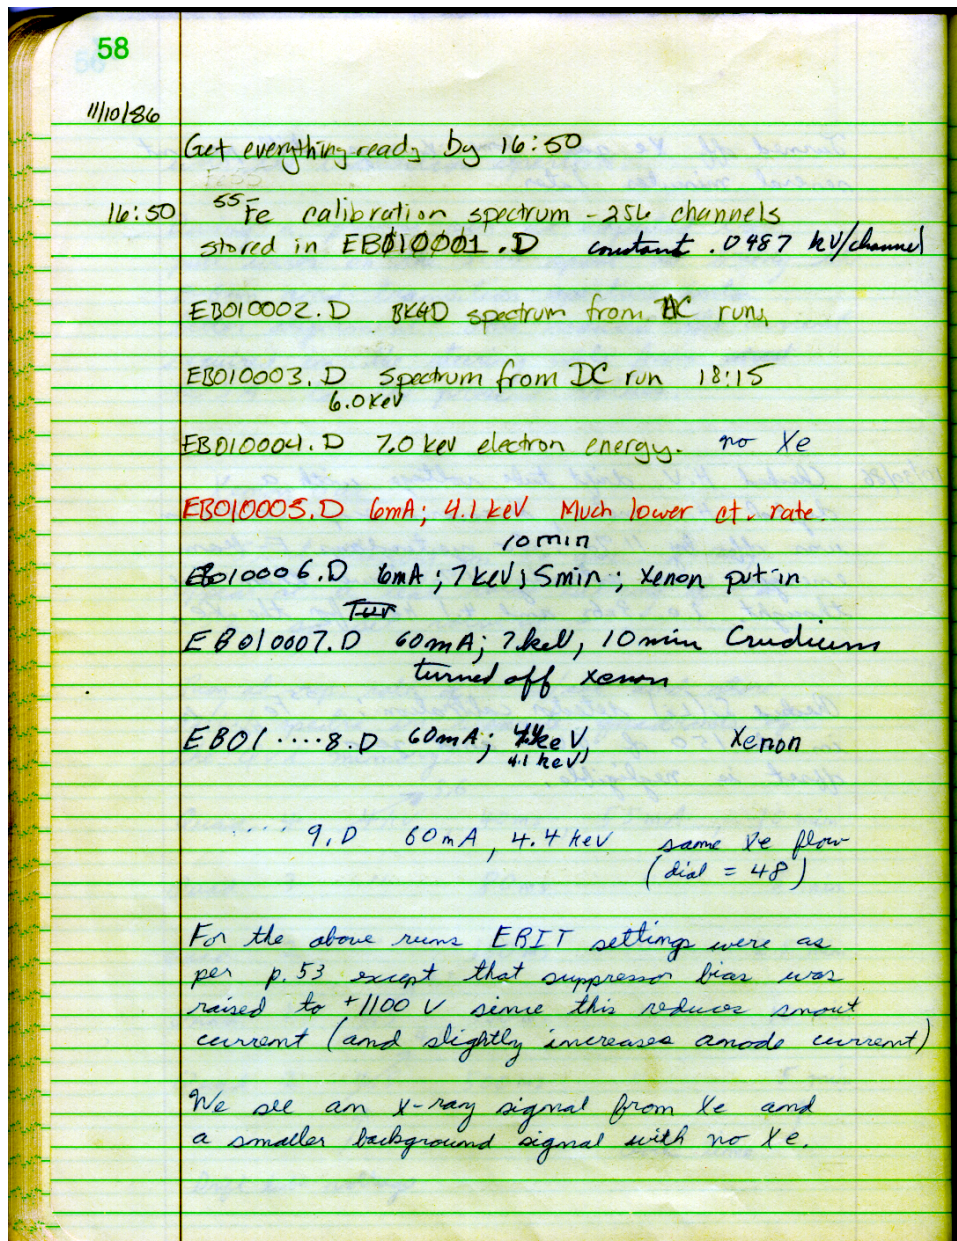 58
11/10/86
Get everything ready by 16:50
16:50 55Fe calibration spectrum - 256 channels
stored in EB010001.D constant .0487 kV/channel
EB010002.D BKGD spectrum from DC run
EB010003.D Spectrum from DC run 18:15
6.0 KeV
EB010004.D 7.0 kev electron energy. no Xe
EB010005.D 6mA; 4.1 keV Much lower ct. rate.
10 min
EB010006.D 6mA; 7 keV; 5min; Xenon put in
EB010007.D 60mA; 7 keV, 10 min Crudium
turned off xenon
EB01....8.D 60mA; 4.4 keV, Xenon
4.1 keV
.... 9.D 60mA, 4.4 keV same Xe flow
(dial = 48)
For the above runs EBIT settings were as
per p.53 except that suppressor bias was
raised to +1100 V since this reduces snout
current (and slightly increases anode current)
We see an X-ray signal from Xe and
a smaller background signal with no Xe.